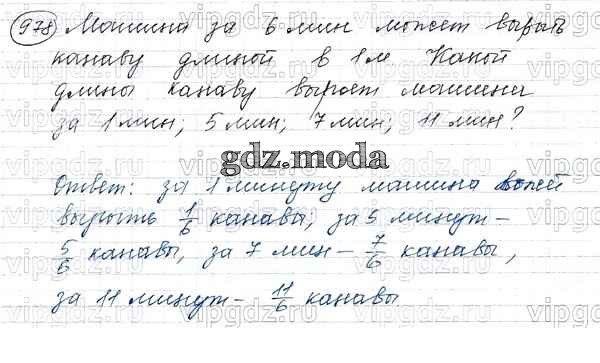 978 Машина за 6 мин может вырыть
канаву длиной в 1 м. Какой
длины канаву выроет машина
за 1 мин; 5 мин; 7 мин; 11 мин?
gdz.moda
Ответ: за 1 минуту машина может
вырыть 1/6 канавы; за 5 минут -
5/6 канавы, за 7 мин - 7/6 канавы,
за 11 минут - 11/6 канавы